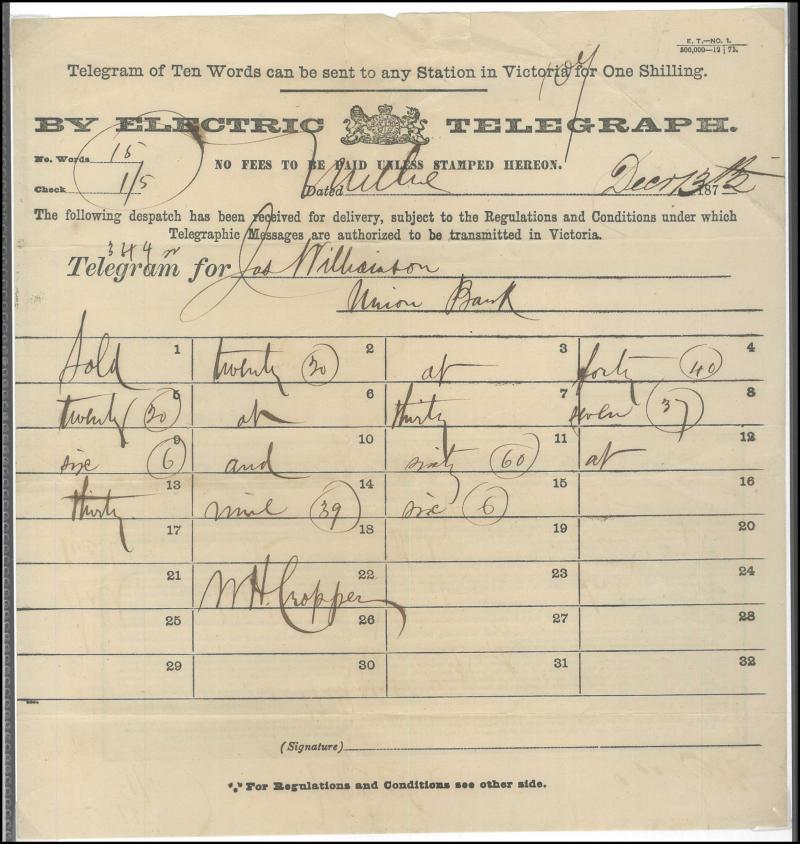 E. T.—NO. 1.
500,000—12 | 71.
Telegram of Ten Words can be sent to any Station in Victoria for One Shilling.
BY ELECTRIC TELEGRAPH.
No. Words 15
NO FEES TO BE PAID UNLESS STAMPED HEREON.
Check 1/5
Dated Decr 13th 187
The following despatch has been received for delivery, subject to the Regulations and Conditions under which
Telegraphic Messages are authorized to be transmitted in Victoria.
344
Telegram for Jas Williamson
Union Bank
Sold 1 twenty 20 2 at 3 forty 40 4
twenty 20 5 at 6 thirty 7 seven 37 8
six 6 9 and 10 sixty 60 11 at 12
thirty 13 nine 39 14 six 6 15 16
17 18 19 20
21 WH Cropper 22 23 24
25 26 27 28
29 30 31 32
(Signature)
For Regulations and Conditions see other side.